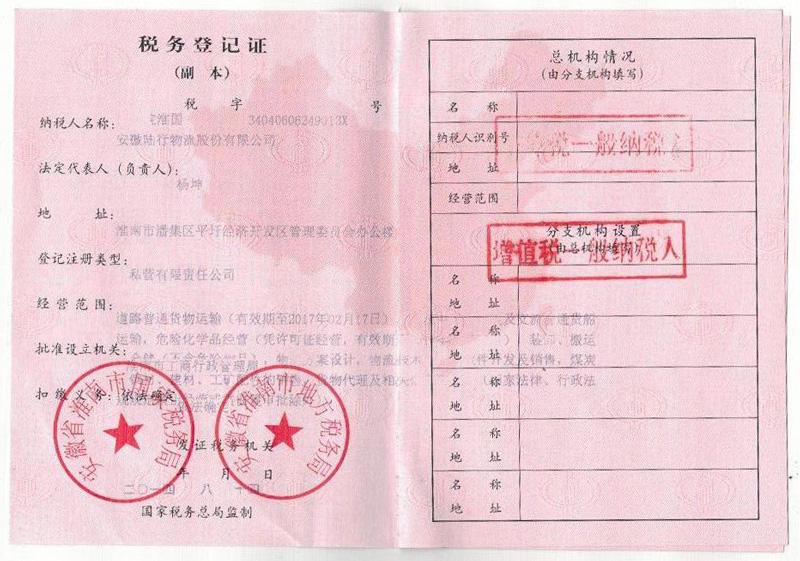 税务登记证
(副 本)
税 字 号
淮国 34040606249013X
纳税人名称:
安徽陆行物流股份有限公司
法定代表人(负责人):
杨坤
地 址:
淮南市潘集区平圩经济开发区管理委员会办公楼
登记注册类型:
私营有限责任公司
经营范围:
道路普通货物运输(有效期至2017年02月17日)
运输,危险化学品经营(凭许可证经营,有效期
批准设立机关:
淮南市工商行政管理局
扣缴义务:依法确定
发证税务机关
年 月 日
二〇一四 八 十四
国家税务总局监制
安徽省淮南市国家税务局
安徽省淮南市地方税务局
总机构情况
(由分支机构填写)
名 称
纳税人识别号
地 址
经营范围
税一般纳税人
分支机构设置
(由总机构填写)
增值税一般纳税人
名 称
地 址
装卸、搬运
件开发及销售、煤炭
名 称
地 址
法律、行政法
名 称
地 址
名 称
地 址